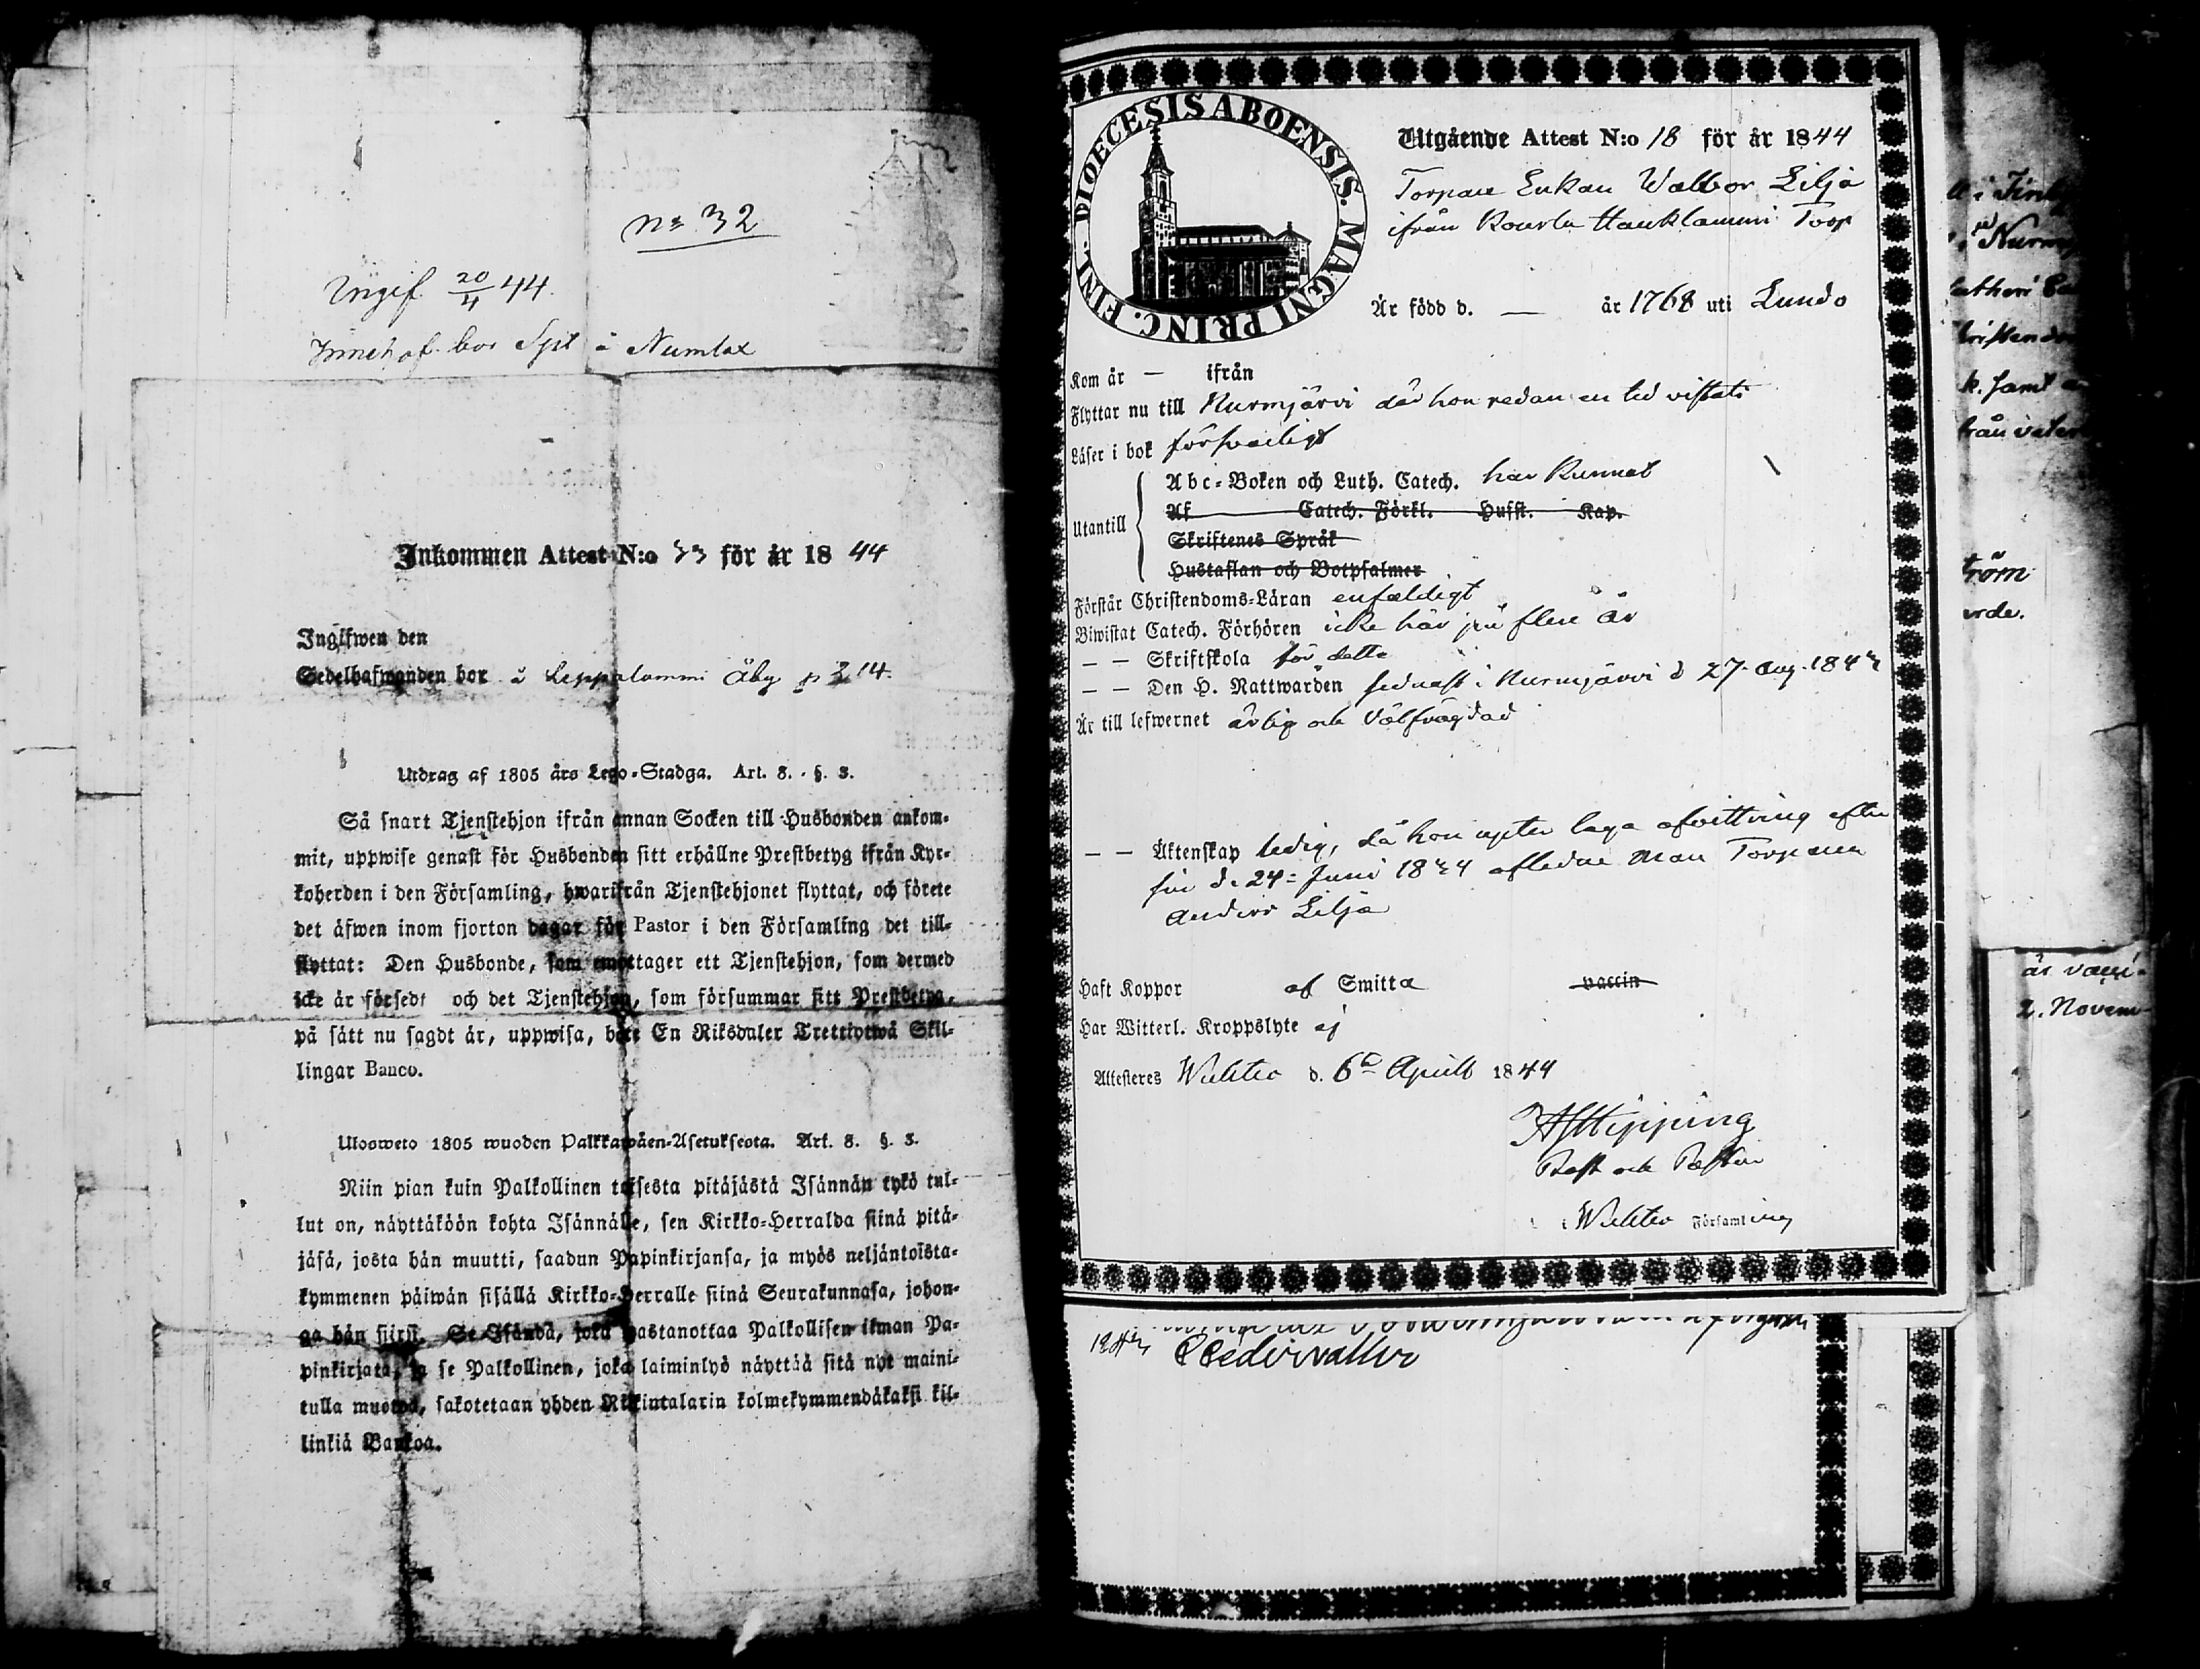 No 32
Ingif. 20/4 44.
Innehaf. bor Spt å Numlax
Inkommen Attest N:o 33 för år 18 44
Ingifwen den
Sedelhafwanden bor å Leppälammi Åby p 314.
Utdrag af 1805 års Lego-Stadga. Art. 8. §. 3.
Så snart Tjenstehjon ifrån annan Socken till Husbonden ankom-
mit, uppwise genast för Husbonden sitt erhållne Prestbetyg ifrån Kyr-
koherden i den Församling, hwarifrån Tjenstehjonet flyttat, och förete
det äfwen inom fjorton dagar för Pastor i den Församling det till-
flyttat: Den Husbonde, som emottager ett Tjenstehjon, som dermed
icke är försedt och det Tjenstehjon, som försummar sitt Prestbetyg,
på sätt nu sagdt är, uppwisa, böte En Riksdaler Trettiotwå Skil-
lingar Banco.
Ulosweto 1805 wuoden Palkkawäen-Asetuksesta. Art. 8. §. 3.
Niin pian kuin Palkollinen toisesta pitäjästä Isännän tykö tul-
lut on, näyttäköön kohta Isännälle, sen Kirkko-Herralda siinä pitä-
jäsä, josta hän muutti, saadun Papinkirjansa, ja myös neljäntoista-
kymmenen päiwän sisällä Kirkko-Herralle siinä Seurakunnasa, johon-
ga hän siirsi. Se Isändä, joka wastanottaa Palkollisen ilman Pa-
pinkirjata, ja se Palkollinen, joka laiminlyö näyttää sitä nyt maini-
tulla muotoa, sakotetaan yhden Rikintalarin kolmekymmendäkaksi kil-
linkiä Bankoa.
FINL. DIOECESIS ABOENSIS. MAGNI PRINC.
Utgående Attest N:o 18 för år 1844
Torpare Enkan Walbor Lilja
ifrån Rourla Hauklammi Torp
Är född d. — år 1768 uti Lundo
Kom år — ifrån
Flyttar nu till Nurmjärvi där hon redan en tid vistats
Läser i bok försvarligt
Utantill
Abc-Boken och Luth. Catech. har kunnat
Af Catech. Förkl. Hufst. Kap.
Skriftenes Språk
Hustaflan och Botpsalmer
Förstår Christendoms-Läran enfaldigt
Biwistat Catech. Förhören icke här på flere år
— — Skriftskola för detta
— — Den H. Nattwarden sednast i Nurmjärvi d 27. Aug. 1843
Är till lefwernet ärlig och välfrägdad
— — Äktenskap ledig, då hon njuter laga afvittring efter
sin d. 24 Juni 1834 afledne man Torparen
Anders Lilja
Haft Koppor af Smitta vaccin
Har Witterl. Kroppslyte ej
Attesteres Wichtis d. 6 Aprill 1844
AJHipping
Prost och Pastor
i Wichtis Församling
1843 CCedervaller
tröm
är vacci-
2. Novem-